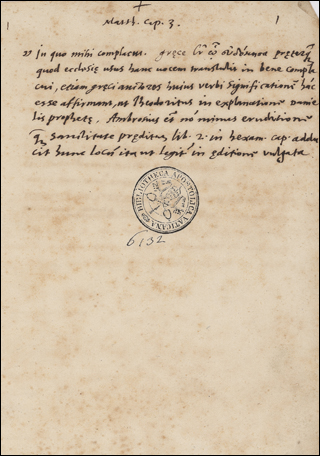 Matth. Cap. 3.
In quo mihi complacui. græce
quod ecclesiæ usus hanc uocem transtulit in bene compla
cui, etiam græci auctores huius verbi significationē hāc
esse affirmant, ut Theodoritus in explanatione Danie
lis prophetæ. Ambrosius no minus eruditione
sanctitate præditus lib. 2. in hexam. cap.
cit hunc locū ita ut legit in editione vulgata
BIBLIOTHECA APOSTOLICA VATICANA
6132